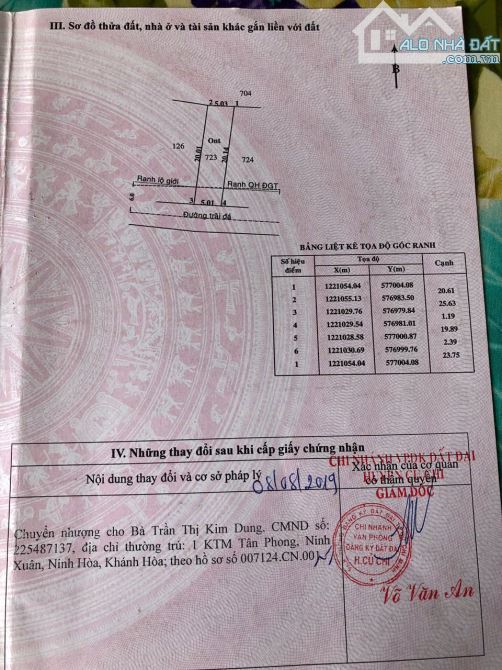 ALO NHÀ ĐẤT
.com.vn
III. Sơ đồ thửa đất, nhà ở và tài sản khác gắn liền với đất
B
704
2 5.03 1
Ont
126
20.01
723
20.14
724
Ranh lộ giới
Ranh QH ĐGT
3 5.01 4
Đường trải đá
BẢNG LIỆT KÊ TỌA ĐỘ GÓC RANH
Số hiệu điểm Tọa độ Cạnh
X(m) Y(m)
1 1221054.04 577004.08
20.61
2 1221055.13 576983.50
25.63
3 1221029.76 576979.84
1.19
4 1221029.54 576981.01
19.89
5 1221028.58 577000.87
2.39
6 1221030.69 576999.76
23.75
1 1221054.04 577004.08
IV. Những thay đổi sau khi cấp giấy chứng nhận
Nội dung thay đổi và cơ sở pháp lý
Xác nhận của cơ quan
có thẩm quyền
CHI NHÁNH VPĐK ĐẤT ĐAI
HUYỆN CỦ CHI
GIÁM ĐỐC
08/08/2019
Chuyển nhượng cho Bà Trần Thị Kim Dung. CMND số:
225487137, địa chỉ thường trú: 1 KTM Tân Phong, Ninh
Xuân, Ninh Hòa, Khánh Hòa; theo hồ sơ số 007124.CN.00
CHI NHÁNH
VĂN PHÒNG
ĐĂNG KÝ ĐẤT ĐAI
H.CỦ CHI
Võ Văn An